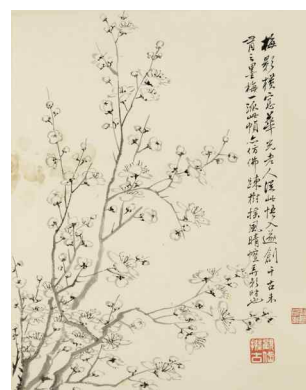 梅影橫窗華光老人從此悟入遂創千古未
有之墨梅一派此幀亦仿佛疎樹搖風晴弄影時也